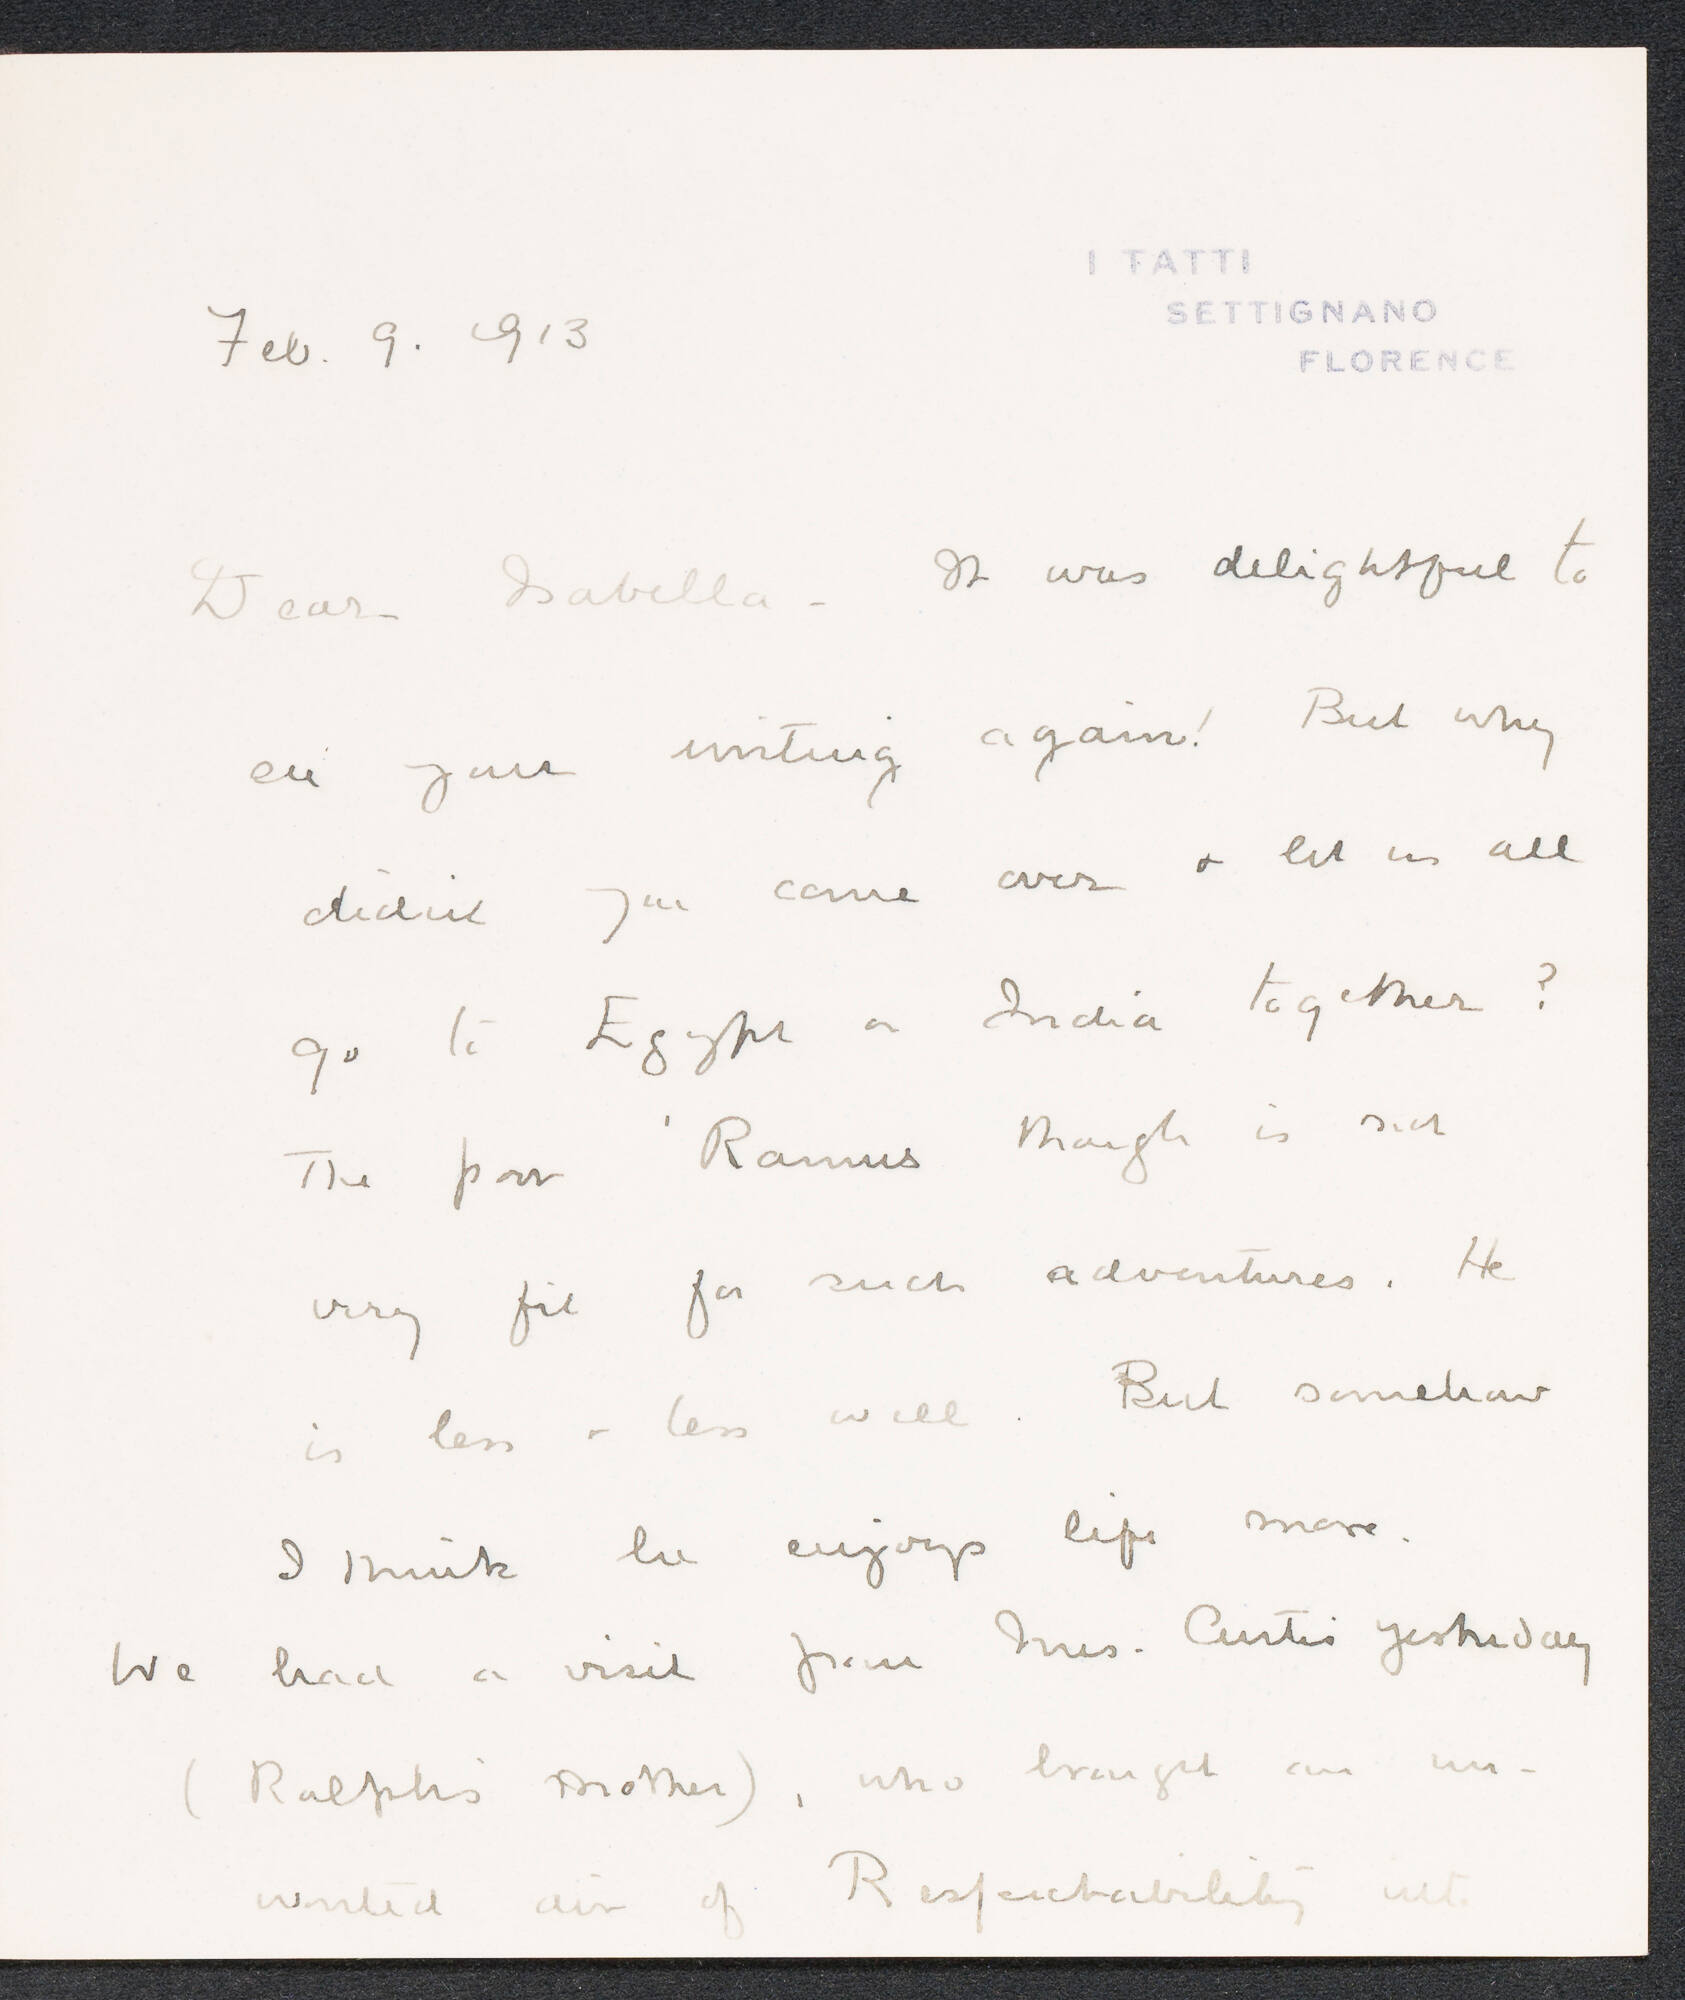 I TATTI
SETTIGNANO
FLORENCE
Feb. 9. 1913
Dear Isabella - It was delightful to
see your writing again! But why
didn't you come over & let us all
go to Egypt or India together?
The poor 'Ramus though is not
very fit for such adventures. He
is less & less well. But somehow
I think he enjoys life more.
We had a visit from Mrs. Curtis yesterday
(Ralph's mother), who brought an un-
wonted air of Respectability into